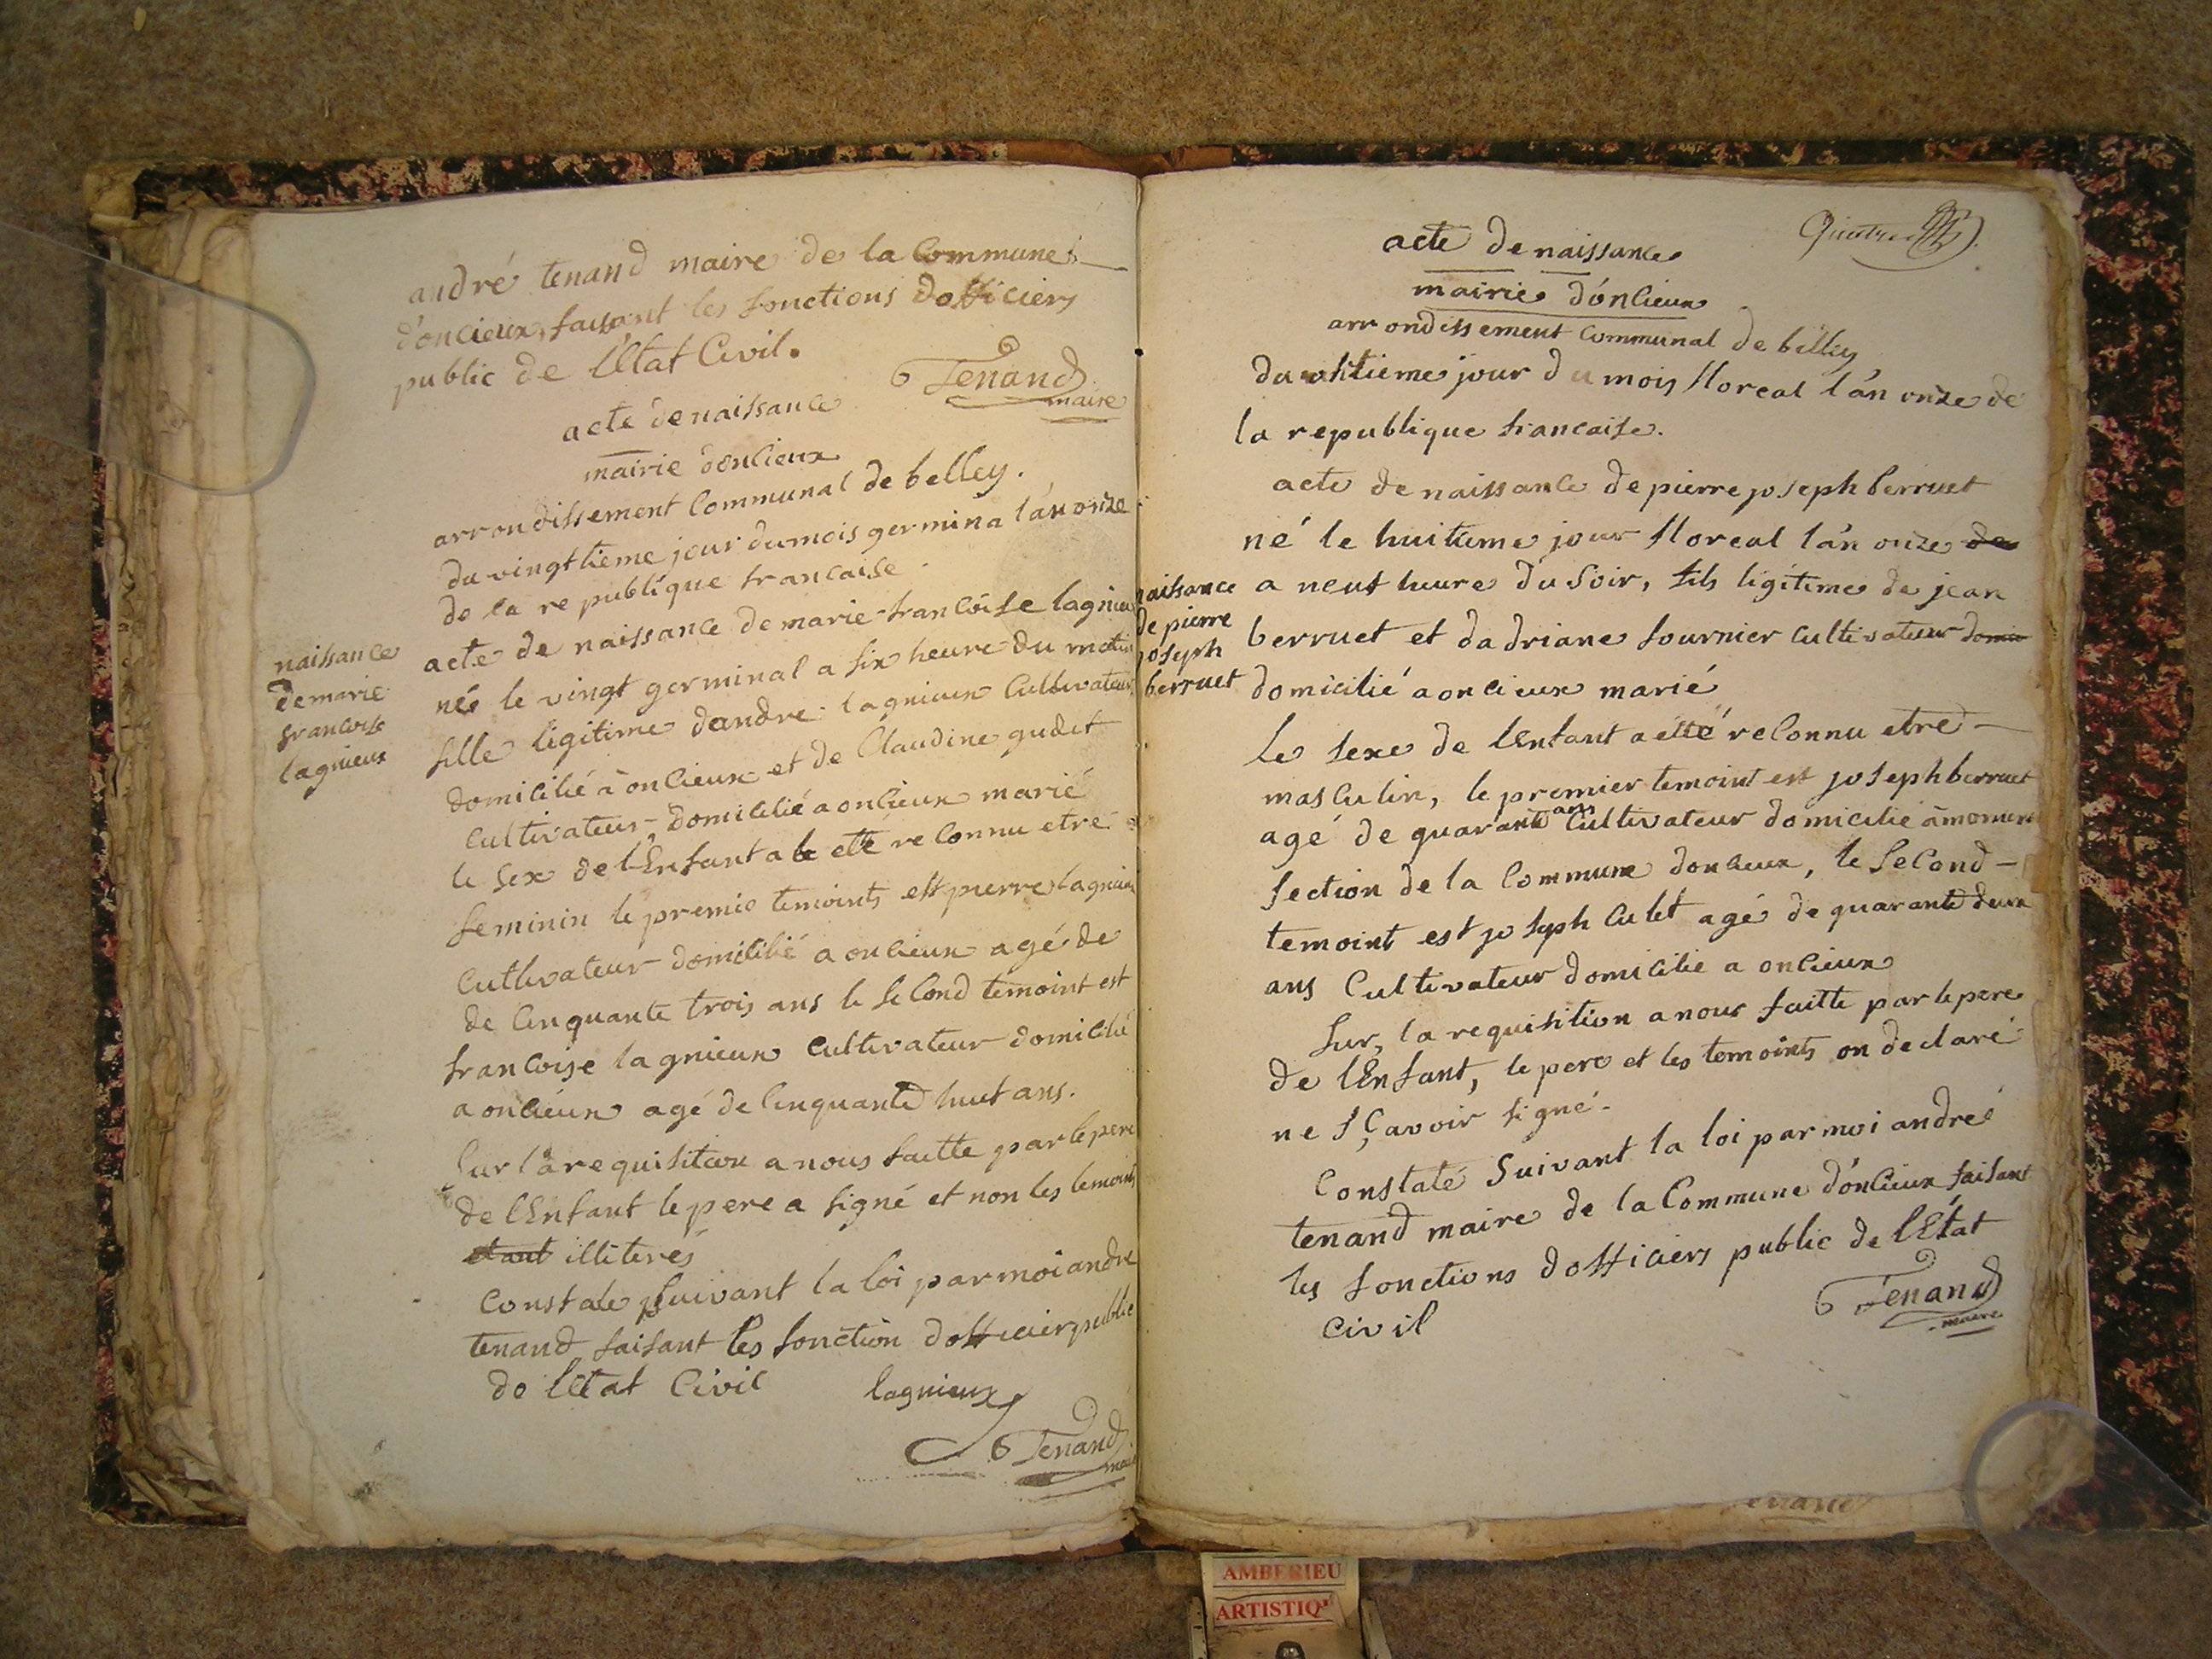 andré tenand maire de la Commune
d'oncieux, faisant les fonctions dofficiers
public de l'Etat Civil.
Tenand
maire
acte de naissance
mairie doncieux
arrondissement Communal de belley.
du vingtieme jour du mois germinal l'an onze
de la republique francaise
naissance
de marie
francoise
lagnieux
acte de naissance de marie francoise lagnieux
née le vingt germinal a six heure du matin
fille ligitime dandre lagnieux Cultivateur
domicilié à oncieux et de Claudine gudet
cultivateur, domicilié a oncieux marié
le sex de l'Enfant a ette reconnu etre
feminin le premie temoints est pierre lagnieux
Cultivateur domicilié a oncieux agé de
de cinquante trois ans le second temoint est
francoise lagnieux Cultivateur domicilié
a oncieux agé de cinquante huit ans.
Sur la requisition a nous faitte par le pere
de l'Enfant le pere a signé et non les temoints
etant illiterés
Constate suivant la loi par moi andre
tenand faisant les fonction dofficier public
de l'Etat Civil
lagnieux
Tenand
maire
acte de naissance
mairie d'oncieux
arrondissement Communal de belley
du uhitieme jour du mois floreal l'an onze de
la republique francaise.
naissance
de pierre
joseph
berruet
acte de naissance de pierre joseph berruet
né le huitieme jour floreal l'an onze de
a neuf heure du soir, fils ligitime de jean
berruet et dadriane fournier cultivateur domic
domicilié a oncieux marié
le sexe de l'Enfant a etté reconnu etre
masculin, le premier temoint est joseph berruet
agé de quarante ans Cultivateur domicilie à
section de la Commune doncieux, le second
temoint est joseph culet agé de quarante deux
ans Cultivateur domicilie a oncieux
Sur, la requisition a nous faitte par le pere
de l'Enfant, le pere et les temoints on declaré
ne sçavoir signé.
Constaté Suivant la loi par moi andreé
tenand maire de la Commune d'oncieux faisant
les fonctions dofficiers public de l'Etat
civil
Tenand
maire
AMBERIEU
ARTISTIQ